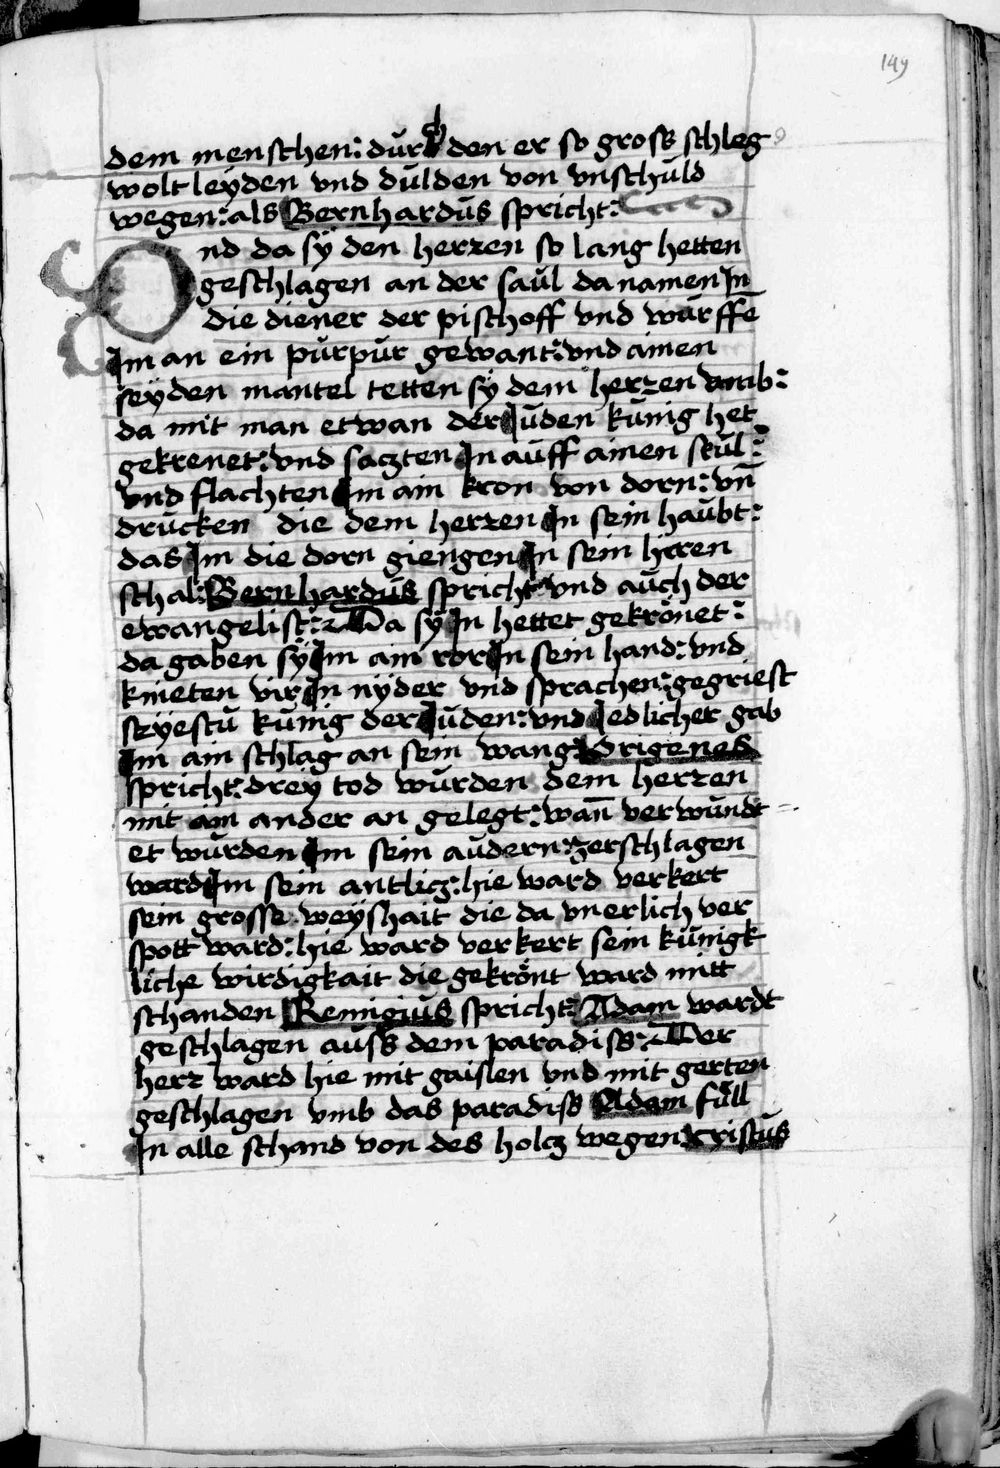 149
dem menschen: durch den er so gross schleg
wolt leyden vnd dulden von vnschuld
wegen: als Bernhardus spricht:
Ond da sy den herren so lang hetten
geschlagen an der saul da namen In
die diener der pischoff vnd wurffe
Im an ein purpur gewant: vnd ainen
seyden mantel tetten sy dem herren vmb:
da mit man etwan der Juden kunig het
gekrenet: vnd saczten In auff ainen stul:
vnd flachten Im ain kron von dorn: vn̄
drucken die dem herren In sein haubt:
das Im die dorn giengen In sein hiren
schal: Bernhardus spricht vnd auch der
ewangelist: Da sy In hettet gekrönet:
da gaben sy Im ain ror In sein hand: vnd
knieten vir In nyder vnd sprachen: gegriest
seyestu kunig der Juden: vnd Jedlicher gab
Im ain schlag an sein wang: Origenes
spricht: drey tod wurden dem herren
mit ain ander an gelegt: wan̄ verwundt
et wurden Im sein audern: zerschlagen
ward Im sein antlicz: hie ward verkert
sein grosse weyshait die da vnerlich ver
spott ward: hie ward verkert sein kunigk
liche wirdigkait die gekrönt ward mitt
schanden Remigius spricht: Adam wardt
geschlagen auss dem paradiss: Der
herr ward hie mit gaislen vnd mit gerten
geschlagen vmb das paradiss Adam füll
In alle schand von des holcz wegen: xristus